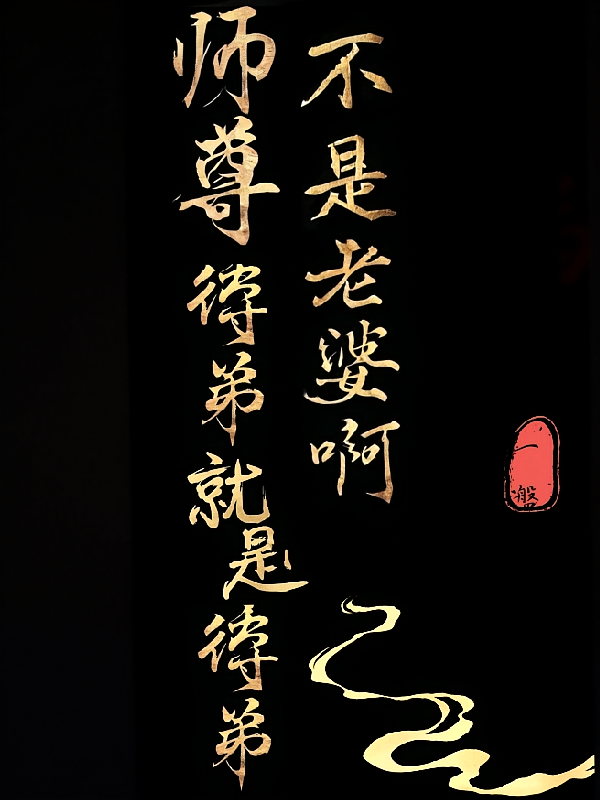 师尊得弟就是得弟
不是老婆啊
一盤